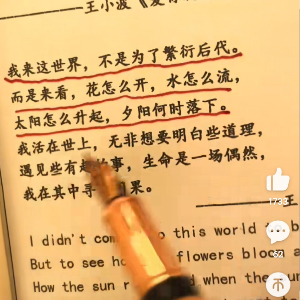 ——王小波《爱你
我来这世界，不是为了繁衍后代。
而是来看，花怎么开，水怎么流，
太阳怎么升起，夕阳何时落下。
我活在世上，无非想要明白些道理，
遇见些有 事，生命是一场偶然，
我在其中寻 果。
I didn't co this world to b
But to see ho flowers bloom a
How the sun r d when the sun
1733
62